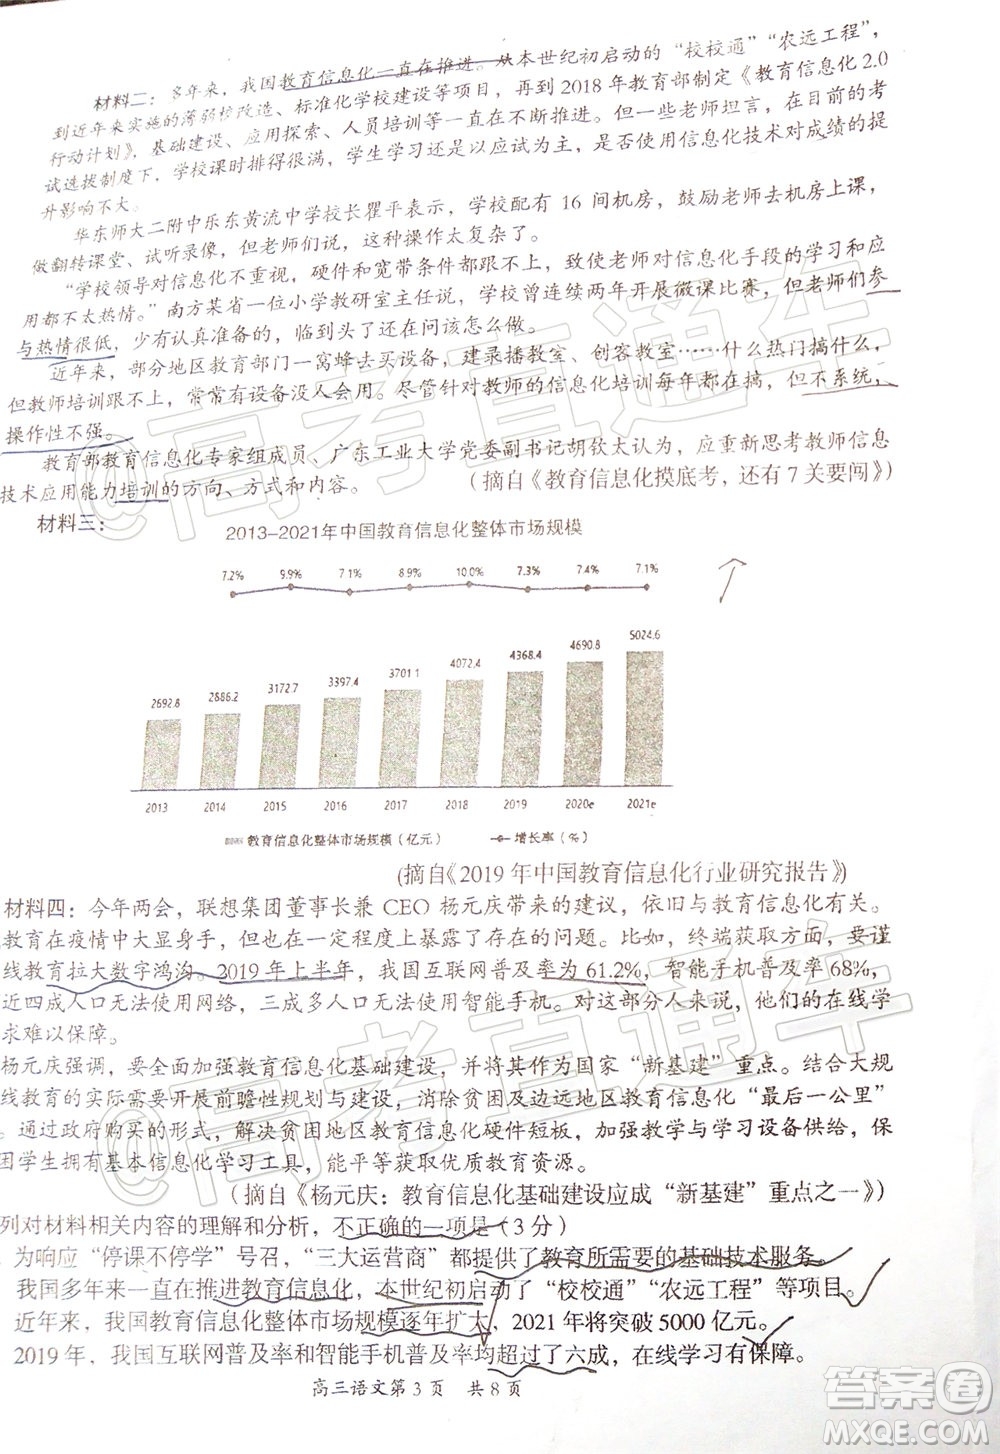 材料二：多年来，我国教育信息化一直在推进。从本世纪初启动的“校校通”“农远工程”，
到近年来实施的薄弱校改造、标准化学校建设等项目，再到2018年教育部制定《教育信息化2.0
行动计划》，基础建设、应用探索、人员培训等一直在不断推进。但一些老师坦言，在目前的考
试选拔制度下，学校课时排得很满，学生学习还是以应试为主，是否使用信息化技术对成绩的提
升影响不大。
华东师大二附中乐东黄流中学校长瞿平表示，学校配有16间机房，鼓励老师去机房上课，
做翻转课堂、试听录像，但老师们说，这种操作太复杂了。
“学校领导对信息化不重视，硬件和宽带条件都跟不上，致使老师对信息化手段的学习和应
用都不太热情。”南方某省一位小学教研室主任说，学校曾连续两年开展微课比赛，但老师们参
与热情很低，少有认真准备的，临到头了还在问该怎么做。
近年来，部分地区教育部门一窝蜂去买设备，建录播教室、创客教室……什么热门搞什么，
但教师培训跟不上，常常有设备没人会用。尽管针对教师的信息化培训每年都在搞，但不系统，
操作性不强。
教育部教育信息化专家组成员、广东工业大学党委副书记胡钦太认为，应重新思考教师信息
技术应用能力培训的方向、方式和内容。
（摘自《教育信息化摸底考，还有7关要闯》）
材料三：
2013-2021年中国教育信息化整体市场规模
7.2% 9.9% 7.1% 8.9% 10.0% 7.3% 7.4% 7.1%
2692.8 2886.2 3172.7 3397.4 3701.1 4072.4 4368.4 4690.8 5024.6
2013 2014 2015 2016 2017 2018 2019 2020e 2021e
教育信息化整体市场规模（亿元） 增长率（%）
(摘自《2019年中国教育信息化行业研究报告》)
材料四：今年两会，联想集团董事长兼CEO杨元庆带来的建议，依旧与教育信息化有关。
教育在疫情中大显身手，但也在一定程度上暴露了存在的问题。比如，终端获取方面，要谨
线教育拉大数字鸿沟。2019年上半年，我国互联网普及率为61.2%，智能手机普及率68%，
近四成人口无法使用网络，三成多人口无法使用智能手机。对这部分人来说，他们的在线学
求难以保障。
杨元庆强调，要全面加强教育信息化基础建设，并将其作为国家“新基建”重点。结合大规
线教育的实际需要开展前瞻性规划与建设，消除贫困及边远地区教育信息化“最后一公里”
。通过政府购买的形式，解决贫困地区教育信息化硬件短板，加强教学与学习设备供给，保
困学生拥有基本信息化学习工具，能平等获取优质教育资源。
（摘自《杨元庆：教育信息化基础建设应成“新基建”重点之一》）
列对材料相关内容的理解和分析，不正确的一项是（3分）
为响应“停课不停学”号召，“三大运营商”都提供了教育所需要的基础技术服务。
我国多年来一直在推进教育信息化，本世纪初启动了“校校通”“农远工程”等项目。
近年来，我国教育信息化整体市场规模逐年扩大，2021年将突破5000亿元。
2019年，我国互联网普及率和智能手机普及率均超过了六成，在线学习有保障。
高三语文第3页 共8页
@高考直通车
@高考直通车
答案圈
MXQE.COM